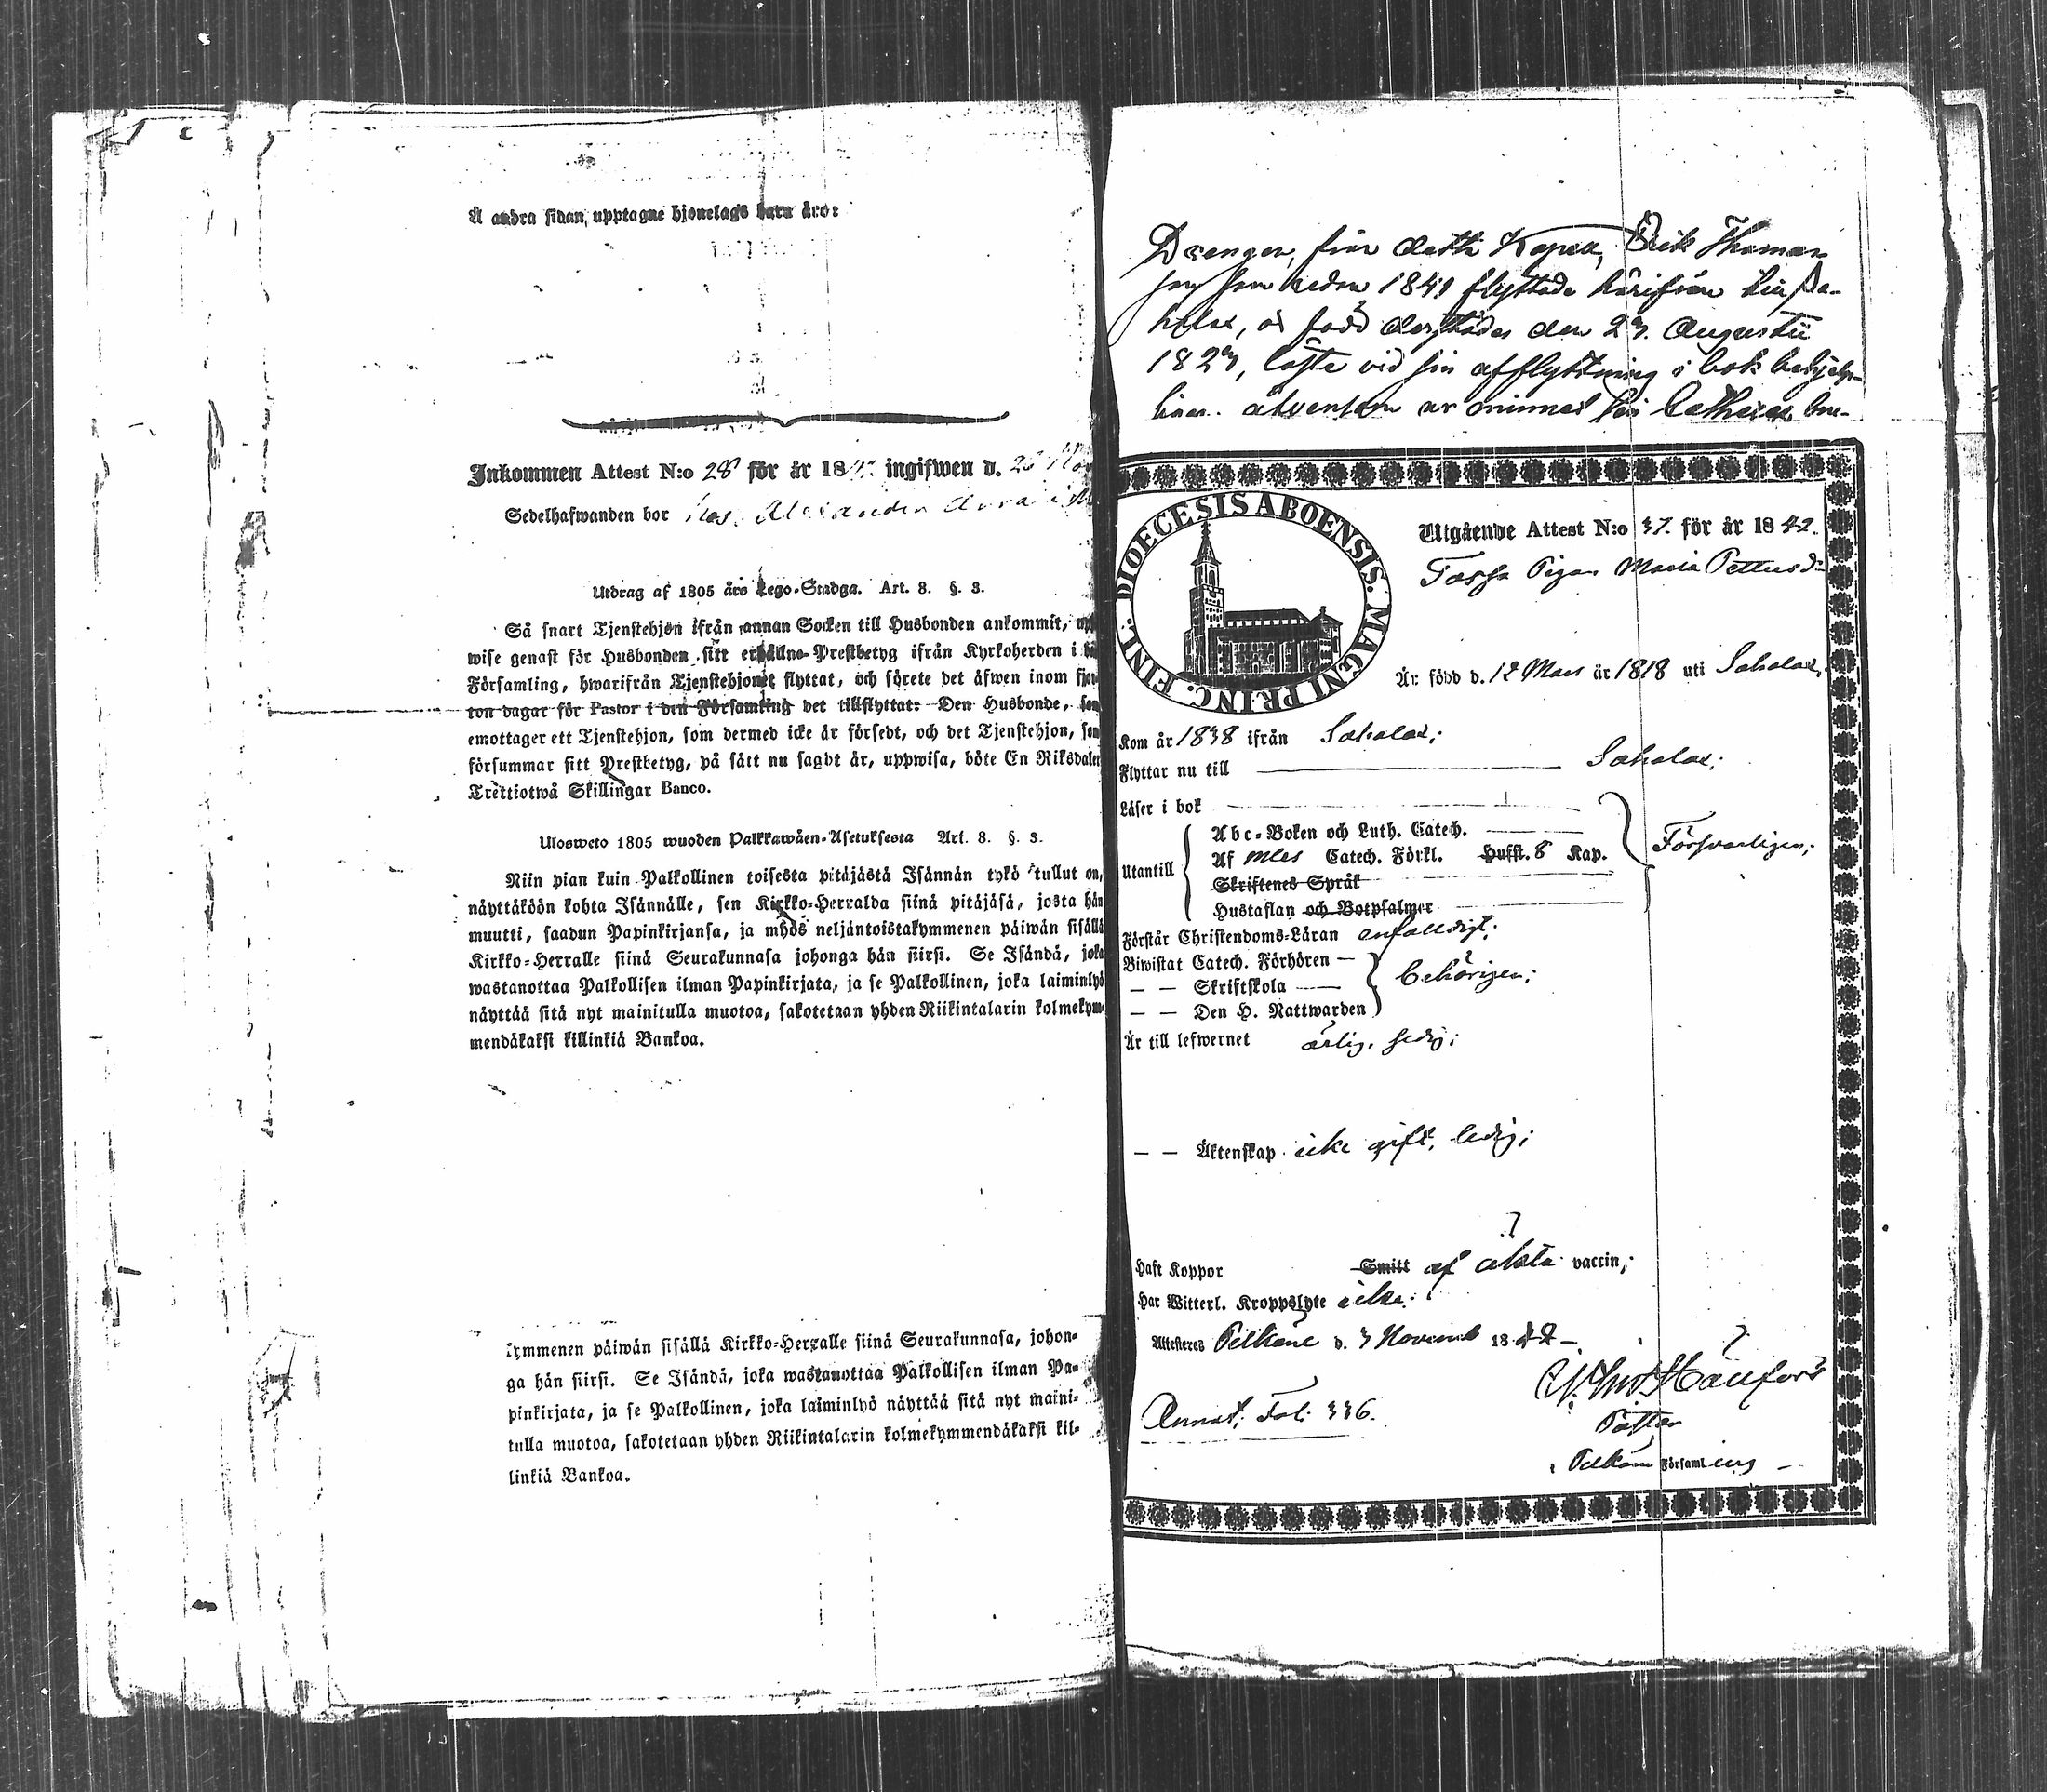 Å andra sidan upptagne hjonelags barn äro:
Inkommen Attest N:o 28 för år 184 ingifwen d.
Sedelhafwanden bor Alexander
Utdrag af 1805 års Lego-Stadga. Art. 8. §. 3.
Så snart Tjenstehjon ifrån annan Socken till Husbonden ankommit,
wise genast för Husbonden sitt erhållne Prestbetyg ifrån Kyrkoherden i
Församling, hwarifrån Tjenstehjonet flyttat, och förete det äfwen inom
ton dagar för Pastor i den Församling det tillflyttat: Den Husbonde, som
emottager ett Tjenstehjon, som dermed icke är försedt, och det Tjenstehjon, som
försummar sitt Prestbetyg, på sätt nu sagdt är, uppwisa, böte En Riksdaler
Trettiotwå Skillingar Banco.
Ulosweto 1805 wuoden Palkkawäen-Asetuksesta Art. 8. §. 3.
Niin pian kuin Palkollinen toisesta pitäjästä Isännän tykö tullut on,
näyttäköön kohta Isännälle, sen Kirkko-Herralda siinä pitäjäsä, josta hän
muutti, saadun Papinkirjansa, ja myös neljäntoistakymmenen päiwän sisällä
Kirkko-Herralle siinä Seurakunnasa johonga hän siirsi. Se Isändä, joka
wastanottaa Palkollisen ilman Papinkirjata, ja se Palkollinen, joka laiminlyö
näyttää sitä nyt mainitulla muotoa, sakotetaan yhden Riikintalarin kolmekym-
mendäkaksi killinkiä Bankoa.
ymmenen päiwän sisällä Kirkko-Herralle siinä Seurakunnasa, johon-
ga hän siirsi. Se Isändä, joka wastanottaa Palkollisen ilman Pa-
pinkirjata, ja se Palkollinen, joka laiminlyö näyttää sitä nyt maini-
tulla muotoa, sakotetaan yhden Riikintalarin kolmekymmendäkaksi kil-
linkiä Bankoa.
Drengen, Erik Thomas-
son som redan 1841 flyttade härifrån till Sa-
halax, är född derstädes den 23. Augusti
1823, läste vid sin afflyttning i bok behjelp-
ligen. utur minnet
DIOECESIS ABOENSIS. MAGNI PRINC. FINL.
Utgående Attest N:o 37. för år 1842.
Pigan Maria Pettersdr
Är född d. 12 Mars år 1818 uti Sahalax;
Kom år 1838 ifrån Sahalax;
Flyttar nu till Sahalax;
Läser i bok
Abc-Boken och Luth. Catech.
Utantill Af Catech. Förkl. Husst. 8 Kap. Försvarligen;
Skriftenes Språk
Hustaflan och Botpsalmer
Förstår Christendoms-Läran enfaldigt;
Biwistat Catech. Förhören
— — Skriftskola behörigen;
— — Den H. Nattwarden
Är till lefwernet ärlig, sedig;
— — Äktenskap icke gift, ledig;
Haft Koppor Smitt af äkta vaccin;
Har Witterl. Kroppslyte icke.
Attesteras Pelkäne d. 3 Novemb 1842
Annot. Fol. 336.
Pastor
i Pelkäne Församling